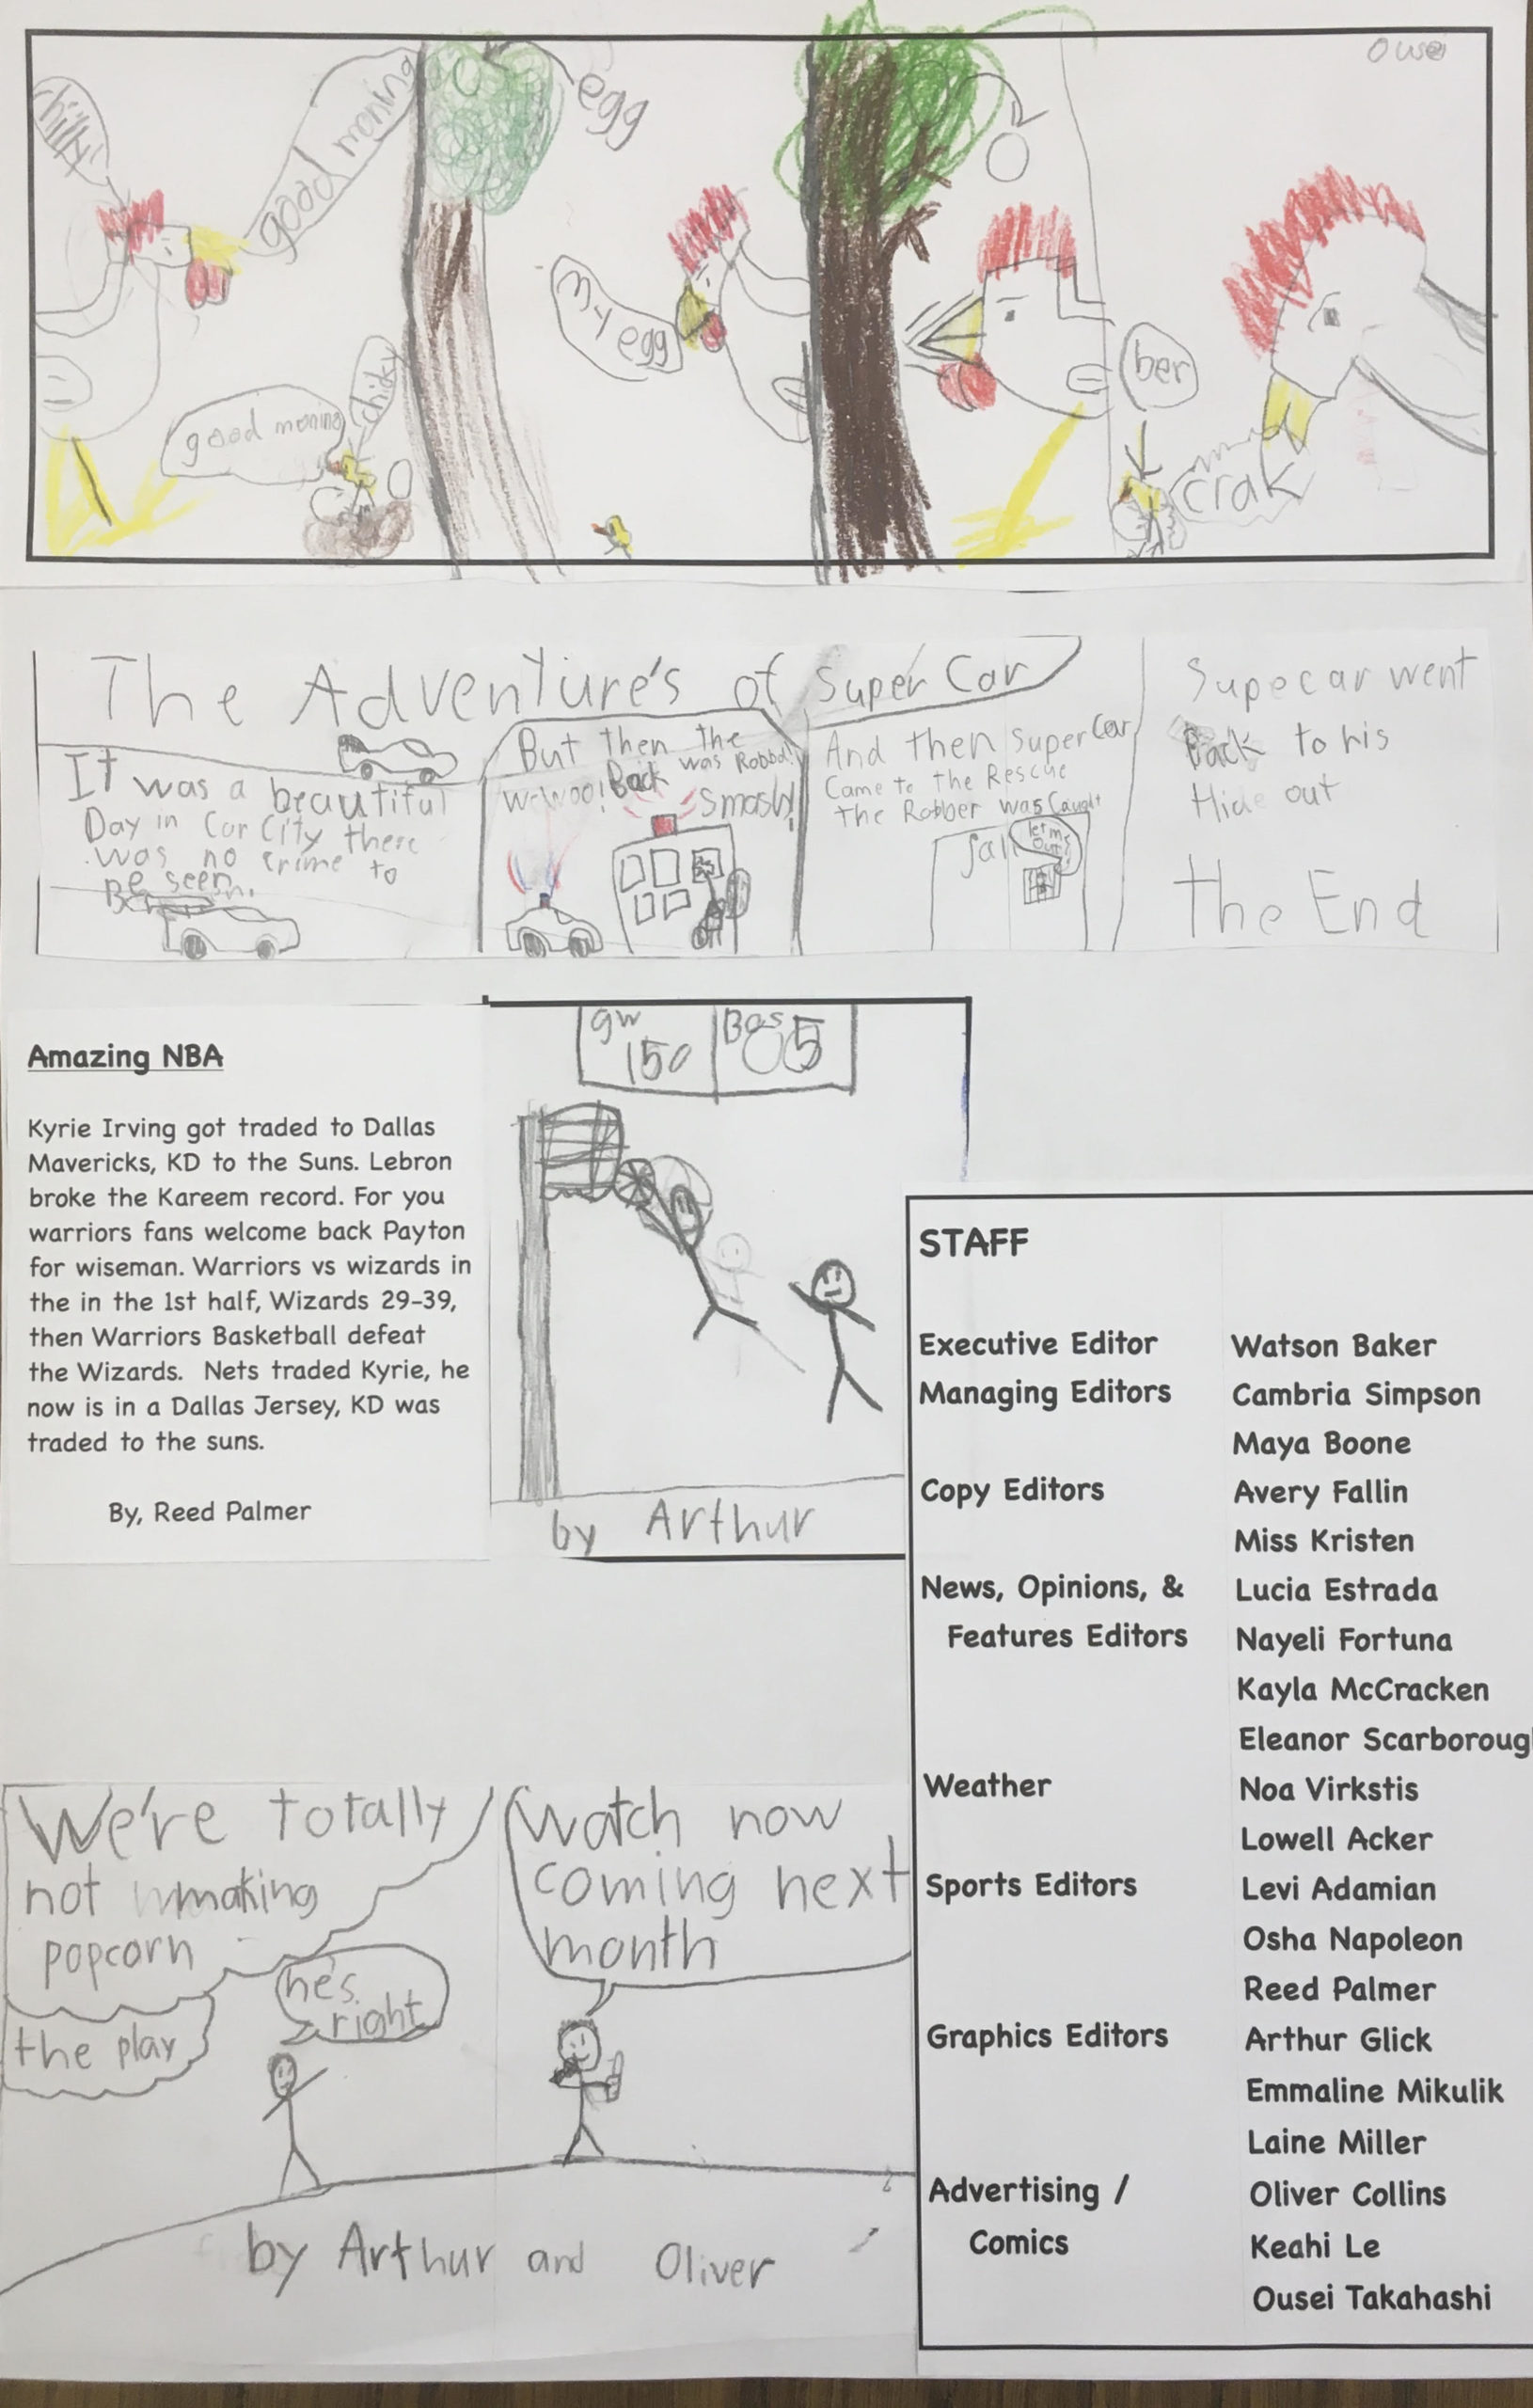 Owsei
good morning
egg
good morning
chiky
my egg
ber
crak
The Adventure's of Super Car
It was a beautiful
Day in Car City there
was no crime to
Be seen.
But then the
Back was Robbd!
wewoo!
Smash!
And then super car
Came to the Rescue
the Robber was Caught
jail
let me
out!
Supecar went
Back to his
Hide out
The End
Amazing NBA
Kyrie Irving got traded to Dallas
Mavericks, KD to the Suns. Lebron
broke the Kareem record. For you
warriors fans welcome back Payton
for wiseman. Warriors vs wizards in
the in the 1st half, Wizards 29-39,
then Warriors Basketball defeat
the Wizards. Nets traded Kyrie, he
now is in a Dallas Jersey, KD was
traded to the suns.
By, Reed Palmer
gw
150
Bos
5
by Arthur
STAFF
Executive Editor Watson Baker
Managing Editors Cambria Simpson
Maya Boone
Copy Editors Avery Fallin
Miss Kristen
News, Opinions, & Lucia Estrada
Features Editors Nayeli Fortuna
Kayla McCracken
Eleanor Scarboroug
Weather Noa Virkstis
Lowell Acker
Sports Editors Levi Adamian
Osha Napoleon
Reed Palmer
Graphics Editors Arthur Glick
Emmaline Mikulik
Laine Miller
Advertising / Oliver Collins
Comics Keahi Le
Ousei Takahashi
We're totally
not making
popcorn
the play
he's
right
Watch now
coming next
month
by Arthur and Oliver